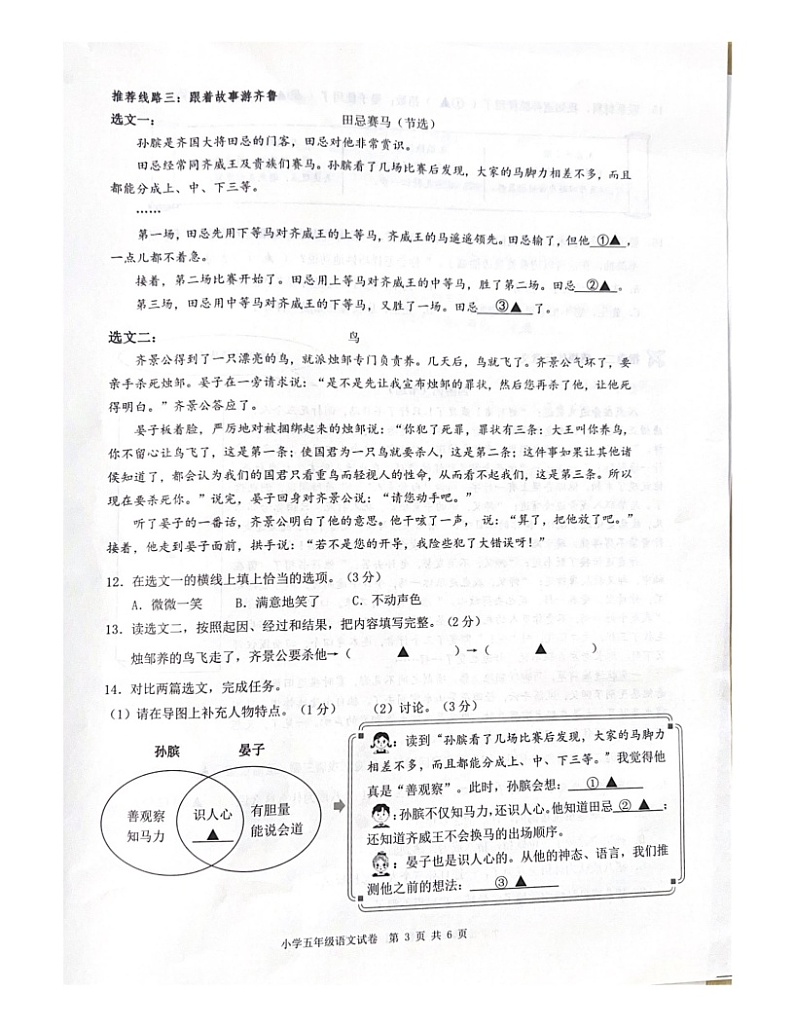 推荐线路三：跟着故事游齐鲁
选文一：
田忌赛马（节选）
孙膑是齐国大将田忌的门客，田忌对他非常赏识。
田忌经常同齐威王及贵族们赛马。孙膑看了几场比赛后发现，大家的马脚力相差不多，而且
都能分成上、中、下三等。
……
第一场，田忌先用下等马对齐威王的上等马，齐威王的马遥遥领先。田忌输了，但他 ①▲ ，
一点儿都不着急。
接着，第二场比赛开始了。田忌用上等马对齐威王的中等马，胜了第二场。田忌 ②▲ 。
第三场，田忌用中等马对齐威王的下等马，又胜了一场。田忌 ③▲ 了。
选文二：
鸟
齐景公得到了一只漂亮的鸟，就派烛邹专门负责养。几天后，鸟就飞了。齐景公气坏了，要
亲手杀死烛邹。晏子在一旁请求说：“是不是先让我宣布烛邹的罪状，然后您再杀了他，让他死
得明白。”齐景公答应了。
晏子板着脸，严厉地对被捆绑起来的烛邹说：“你犯了死罪，罪状有三条：大王叫你养鸟，
你不留心让鸟飞了，这是第一条；使国君为一只鸟就要杀人，这是第二条；这件事如果让其他诸
侯知道了，都会认为我们的国君只看重鸟而轻视人的性命，从而看不起我们，这是第三条。所以
现在要杀死你。”说完，晏子回身对齐景公说：“请您动手吧。”
听了晏子的一番话，齐景公明白了他的意思。他干咳了一声，说：“算了，把他放了吧。”
接着，他走到晏子面前，拱手说：“若不是您的开导，我险些犯了大错误呀！”
12．在选文一的横线上填上恰当的选项。（3 分）
A．微微一笑 B．满意地笑了 C．不动声色
13．读选文二，按照起因、经过和结果，把内容填写完整。（2 分）
烛邹养的鸟飞走了，齐景公要杀他→（ ▲ ）→（ ▲ ）
14．对比两篇选文，完成任务。
（1）请在导图上补充人物特点。（1 分） （2）讨论。（3 分）
孙膑 晏子
善观察
知马力
识人心
▲
有胆量
能说会道
：读到“孙膑看了几场比赛后发现，大家的马脚力
相差不多，而且都能分成上、中、下三等。”我觉得他
真是“善观察”。此时，孙膑会想： ① ▲
：孙膑不仅知马力，还识人心。他知道田忌 ② ▲ ；
还知道齐威王不会换马的出场顺序。
：晏子也是识人心的。从他的神态、语言，我们推
测他之前的想法： ③ ▲
小学五年级语文试卷 第 3 页 共 6 页